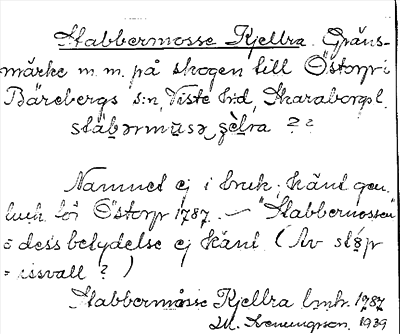 Stabbermosse Kjellra. Gräns-
märke m.m. på skogen till Östorp i
Bärebergs s:n, Viste hd, Skaraborgs l.
Namnet ej i bruk; känt gen.
luck. för Östorp 1787. — "Stabbermossen"
s dess betydelse ej känt. (Av
= issvall ? )
Stabbermåsse Kjellra lmh. 1787
1939